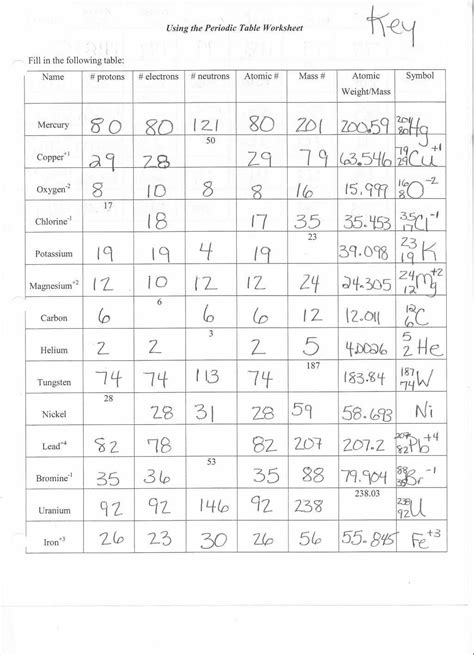 Using the Periodic Table Worksheet
Key
Fill in the following table:
Name # protons # electrons # neutrons Atomic # Mass # Atomic Weight/Mass Symbol
Mercury 80 80 121 80 201 200.59 201 80 Hg
Copper+1 29 28 50 29 79 63.546 79 29 Cu+1
Oxygen-2 8 10 8 8 16 15.999 16 8 O-2
Chlorine-1 17 18 17 35 35.453 35 17 Cl-1
Potassium 19 19 4 19 23 39.098 23 19 K
Magnesium+2 12 10 12 12 24 24.305 24 12 Mg+2
Carbon 6 6 6 6 12 12.011 12 6 C
Helium 2 2 3 2 5 4.0026 5 2 He
Tungsten 74 74 113 74 187 183.84 187 74 W
Nickel 28 28 31 28 59 58.693 Ni
Lead+4 82 78 82 207 207.2 207 82 Pb+4
Bromine-1 35 36 53 35 88 79.904 88 35 Br-1
Uranium 92 92 146 92 238 238.03 92 U
Iron+3 26 23 30 26 56 55.845 Fe+3